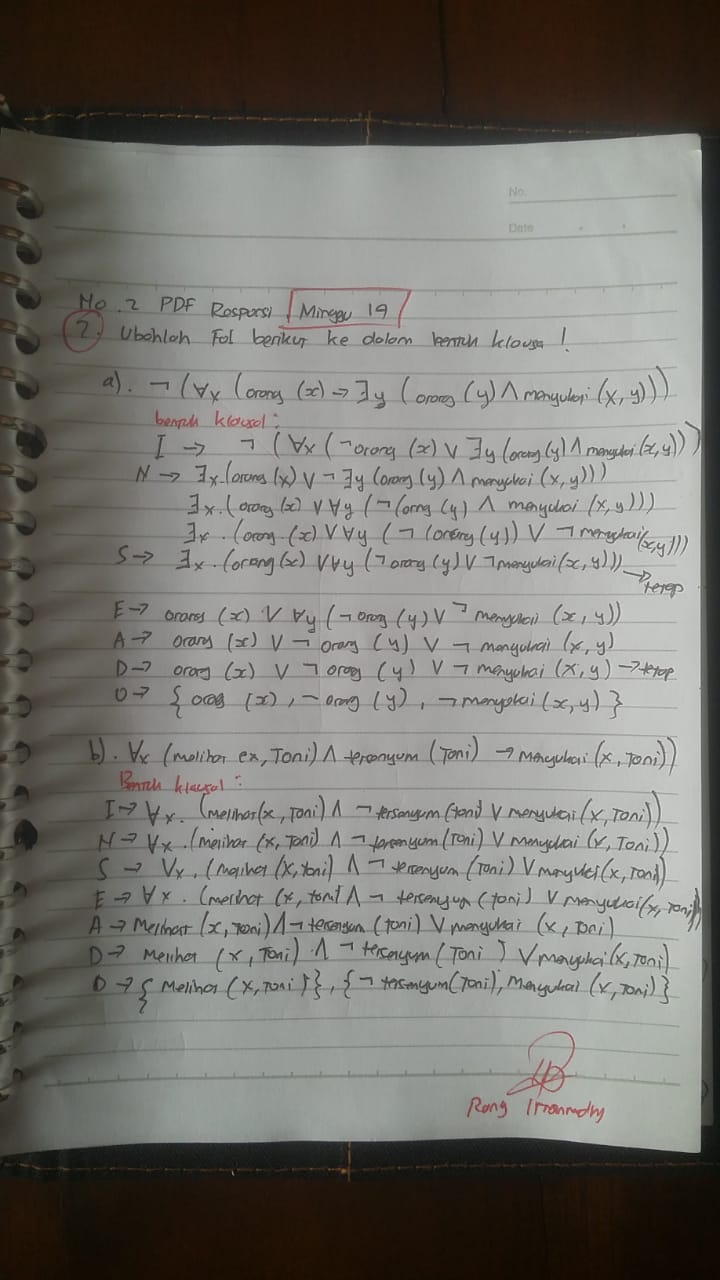 No.
Date
No. 2 PDF Responsi Minggu 19
2. Ubahlah Fol berikut ke dalam bentuk klausa !
a). ¬ (∀x (orang (x) → ∃y (orang (y) ∧ menyukai (x, y)))
bentuk klausal :
I → ¬ (∀x (¬orang (x) ∨ ∃y (orang (y) ∧ menyukai (x, y)))
N → ∃x. (orang (x) ∨ ¬∃y (orang (y) ∧ menyukai (x, y)))
∃x. (orang (x) ∨ ∀y (¬(orang (y) ∧ menyukai (x, y)))
∃x. (orang (x) ∨ ∀y (¬ (orang (y)) ∨ ¬ menyukai (x, y)))
S → ∃x. (orang (x) ∨ ∀y (¬ orang (y) ∨ ¬ menyukai (x, y))) → tetap
E → orang (x) ∨ ∀y (¬ orang (y) ∨ ¬ menyukai (x, y))
A → orang (x) ∨ ¬ orang (y) ∨ ¬ menyukai (x, y)
D → orang (x) ∨ ¬ orang (y) ∨ ¬ menyukai (x, y) → tetap
O → { orang (x), ¬ orang (y), ¬ menyukai (x, y) }
b). ∀x (melihat (x, Toni) ∧ tersenyum (Toni) → menyukai (x, Toni))
Bentuk klausal :
I → ∀x. (melihat (x, Toni) ∧ ¬ tersenyum (toni) ∨ menyukai (x, Toni))
N → ∀x. (melihat (x, Toni) ∧ ¬ tersenyum (Toni) ∨ menyukai (x, Toni))
S → ∀x. (melihat (x, toni) ∧ ¬ tersenyum (Toni) ∨ menyukai (x, Toni)
E → ∀x. (melihat (x, toni) ∧ ¬ tersenyum (toni) ∨ menyukai (x, Toni))
A → Melihat (x, Toni) ∧ ¬ tersenyum (toni) ∨ menyukai (x, Toni)
D → Melihat (x, Toni) ∧ ¬ tersenyum (Toni) ∨ menyukai (x, Toni)
O → { Melihat (x, Toni) }, { ¬ tersenyum (Toni), Menyukai (x, Toni) }